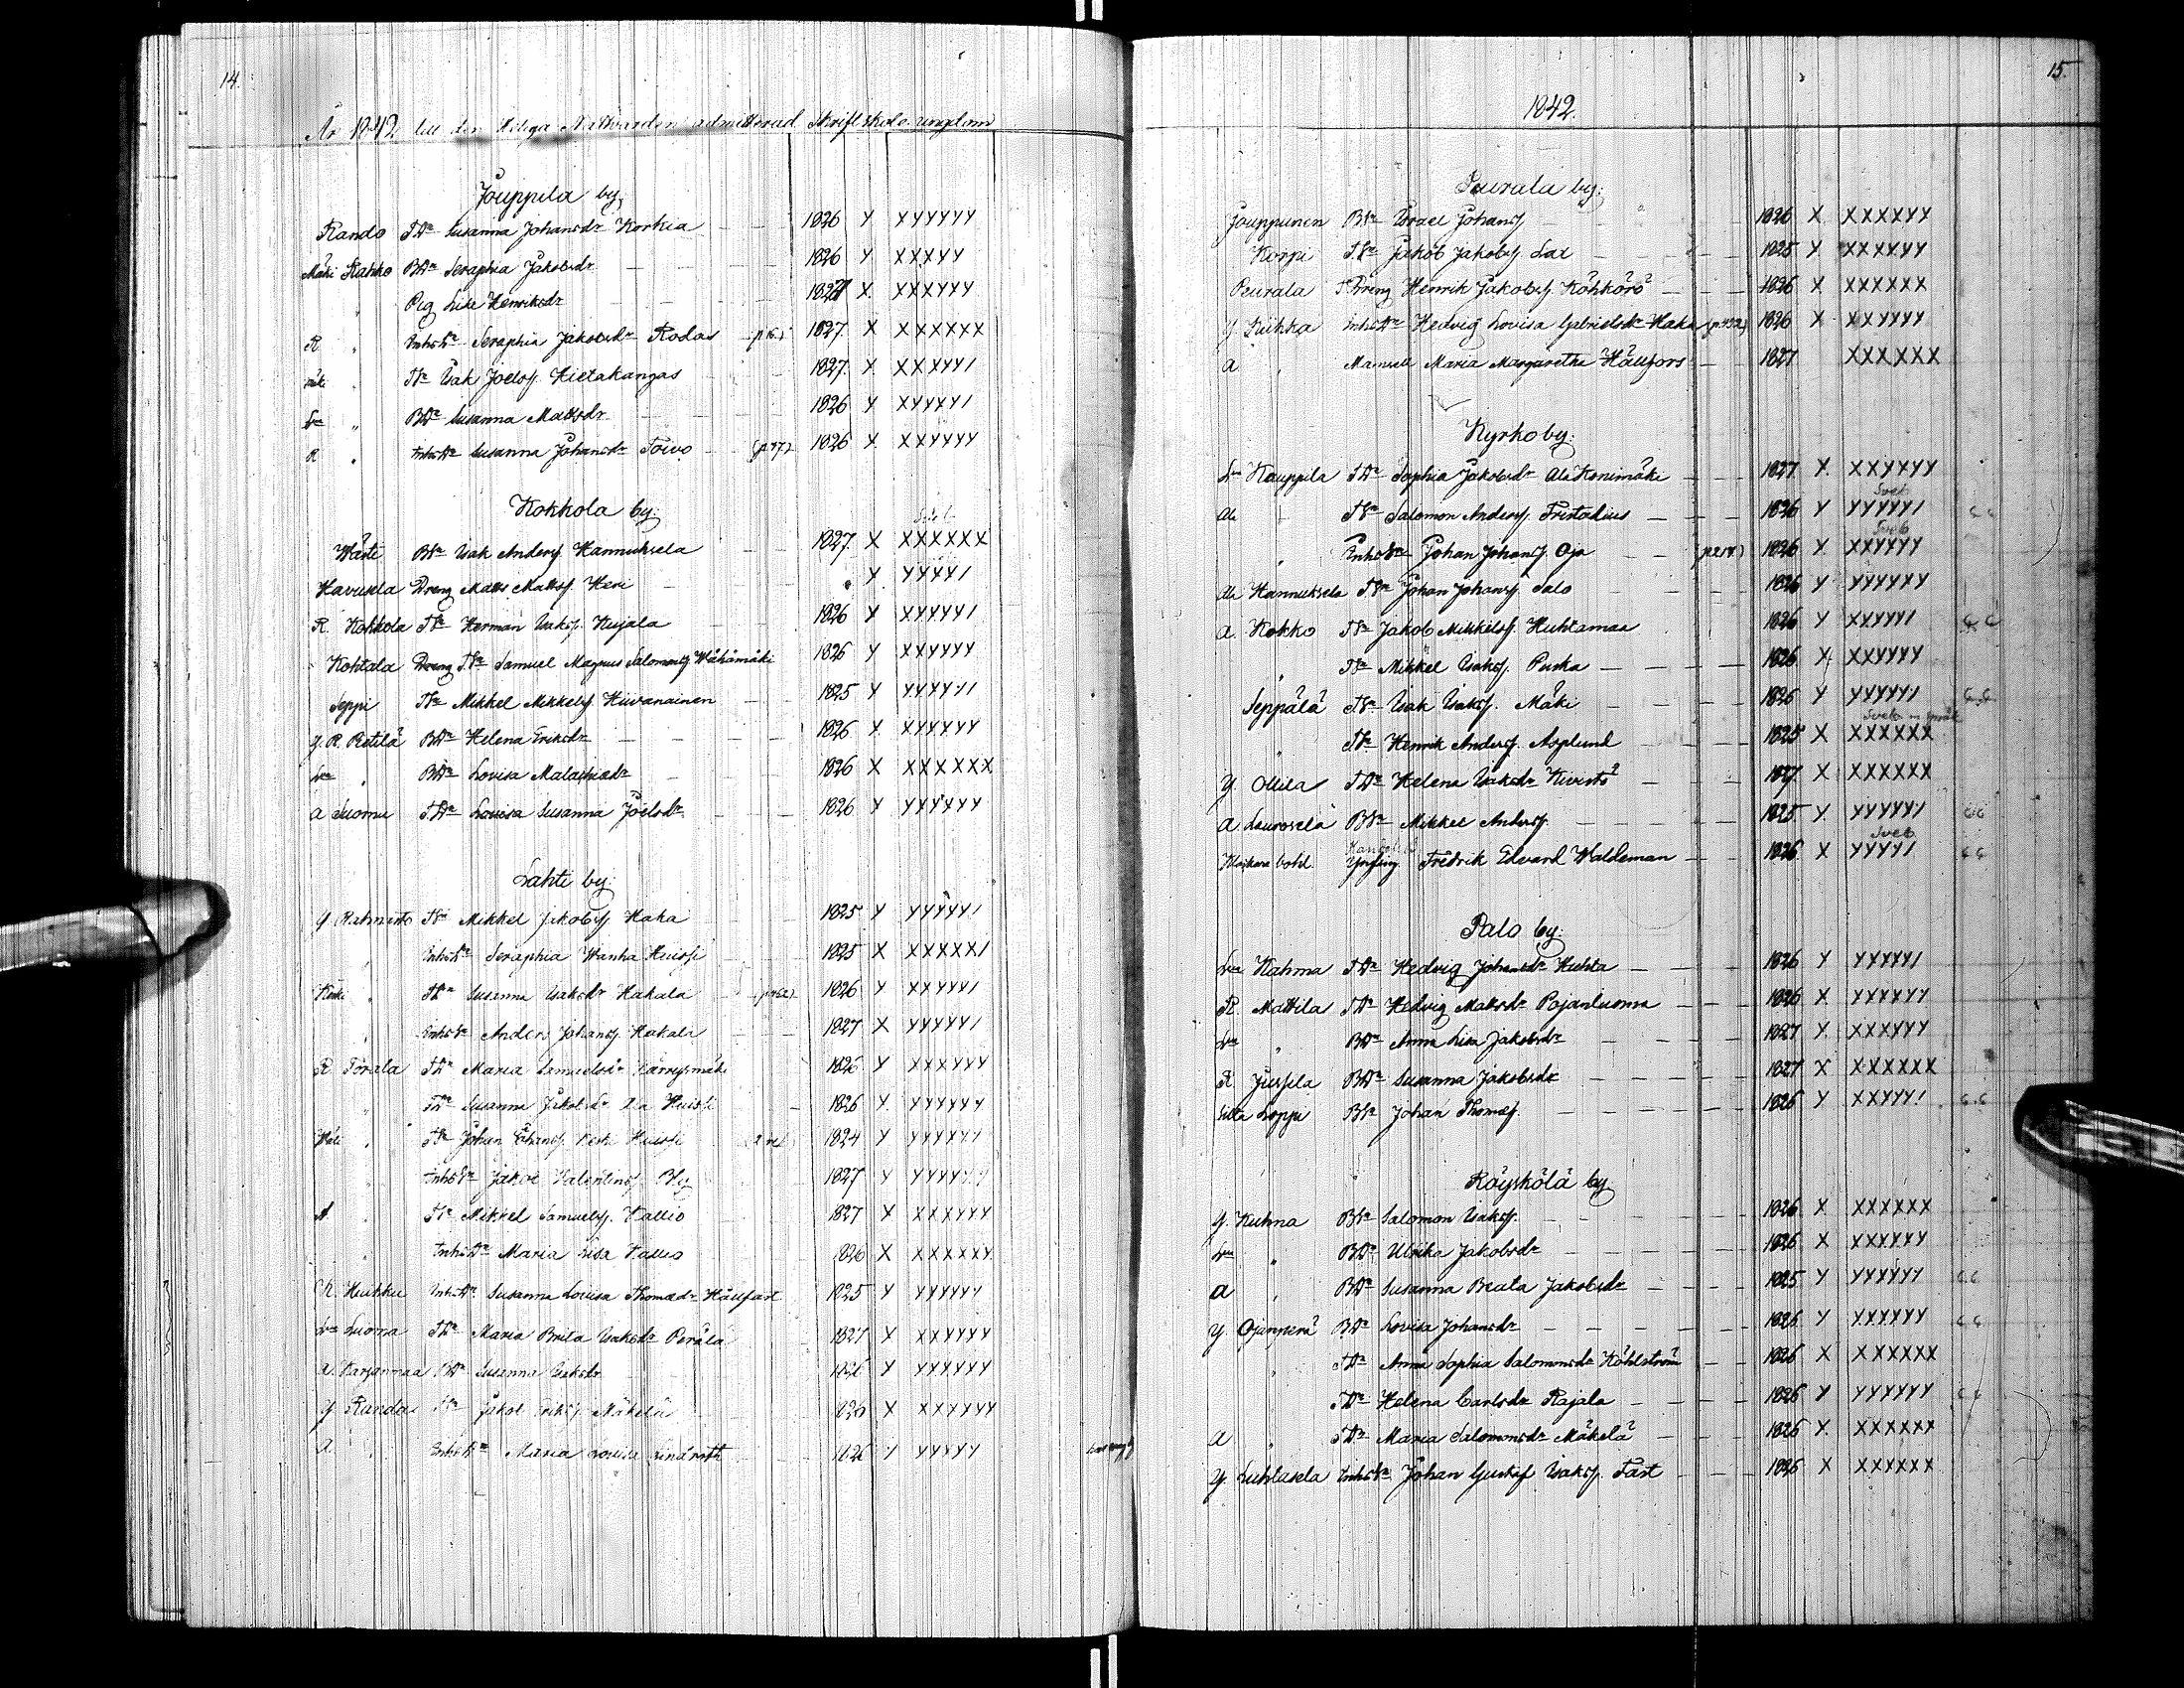 14.
År 1842 till den Heliga Nattvarden admitterad Skriftskole ungdom
Jouppila by,
Rando TDr Susanna Johansdr Korkia 1826 Y XYYYYY
Mäki Kahko BDr Seraphia Jakobsdr 1826 Y XXXYY
" Pig Lisa Henriksdr 1827 X XXXYYY
R " Inhs Dr Seraphia Jakobsdr Rodas 1827. X XXXXXX
" TSn Isak Joelss. Hietakangas 1827. X XXXYY/
Lm " BDr Susanna Mattsdr 1826 Y XYYYY/
R " InhsDr Susanna Johansdr Toivo (p 47) 1826 X XXYYYY
Kokkola by:
Wästi BSn Isak Anderss. Hannuksela 1827. X XXXXXX
Havusela Dreng Matts Mattss. Heri " Y YYYY/
R. Kokkola TSn Herman Isakss. Kujala 1826 Y XYYYY/
Kohtala TSn Samuel Magnus Salomonss Wähämäki 1826 Y XXYYYY
Seppi TSn Mikkel Mikkelss Hiivanainen 1825 Y YYYY//
Y. R. Retilä BDr Helena Eriksdr 1826 X XYYYYY
Lm " BDr Lovisa Malachiadr 1826 X XXXXXX
A Luomu TDr Lovisa Susanna Joelsdr 1826 Y YYYYYY
Lahti by:
Y Rahnasto TSn Mikkel Jakobss Haka 1825 Y YYYYY/
" InhsDr Seraphia Wanha Huissi 1825 X XXXXX/
Keski " TDr Susanna Isaksdr Hakala 1826 Y XXYYY/
InhsSn Anders Johanss. Hakala 1827 X YYYYY/
R Torala TDr Maria Samuelsdr 1826 Y XXYYYY
" TDr Susanna Jakobsdr Ala Huissi 1826 Y XYYYYY
" TSn Johan Johanss. Keski Huissi 1824 Y YYYYYY
InhsSn Jakob Valentinss Bly 1827 Y YYYYYY
A " TSn Mikkel Samuelss. Kallio 1827 X XXXYYY
" InhsDr Maria Lisa Kallio 1826 X XXXXXY
R Huikku InhsDr Susanna Lovisa Thomasdr Hällfast 1825 Y YYYYYY
Lm Luoma TDr Maria Brita Isaksdr Perälä 1827 X XXYYYY
A. Karjanmaa BDr Susanna Isaksdr 1826 Y YYYYYY
Y Randa TSn Jakob Erikss. Mäkelä 1826 X XXYYYY
A. " InhsDr Maria Lovisa Lindroth 1826 Y YYYYY
15.
1842.
Peurala by:
Jouppinen BSn Israel Johanss 1826 X XXXXYY
Korpi TSn Jakob Jakobss. Sax 1825 Y XXXXYY
Peurala Dreng Henrik Jakobss Köhkörö 1826 X XXXXXX
Y Kiikka InhsDr Hedvig Lovisa Gabrielsdr Haka 1826 X XXYYYY
A " Mamsell Maria Margaretha Hällfors 1827 XXXXXX
Kyrkoby:
Lm Kauppila TDr Sophia Jakobsdr Ala Konimäki 1827. Y XXYYYY
Svet
Ala " TSn Salomon Anderss. Tristadius 1826 Y YYYYY/
Svet
" InhsSn Johan Johanss. Oja 1826 Y XXYYYY
Ala Hannuksela TSn Johan Johanss. Salo 1826 Y YYYYYY
A. Kokko TSn Jakob Mikkelss. Huhtamaa 1826 Y XXYYY/
" TSn Mikkel Isakss. Puska 1826 X XXYYYY
Seppälä TSn Isak Isakss. Mäki 1826 Y YYYYY/
" TSn Henrik Anderss. Asplund 1825 X XXXXXX
Y Ollila TDr Helena Isaksdr Kivistö 1827 X XXXXXX
A Laurosela BSn Mikkel Anderss. 1825 Y YYYYY/
Svet
Klockare bohl Yngling Fredrik Edvard Waldeman 1826 X YYYY/
Palo by:
Lm Kahma TDr Hedvig Johansdr Huhta 1826 Y YYYYY/
R. Mattila TDr Hedvig Mattsdr Pojanluoma 1826 X YYYYYY
Lm " BDr Anna Lisa Jakobsdr 1827 Y. XXXYYY
R. Jussila BDr Susanna Jakobsdr 1827 X XXXXXX
Silta Loppi BSn Johan Thomass. 1826 Y XXYYY/
Röyskölä by
Y. Kuhna BSn Salomon Isakss. 1826 X XXXXXX
Lm " BDr Ulrika Jakobsdr 1826 X XXYYYY
A " BDr Susanna Beata Jakobsdr 1825 Y YYYYYY
Y. Ojanperä BDr Lovisa Johansdr 1826 Y YYYYYY
" TDr Anna Sophia Salomonsdr Kåhlström 1826 X XXXXXX
TDr Helena Carlsdr Rajala 1826 Y YYYYYY
A " TDr Maria Salomonsdr Mäkelä 1826 X XXXXXX
Y. Luhtasela InhsSn Johan Gustaf Isakss. Fast 1826 X XXXXXX